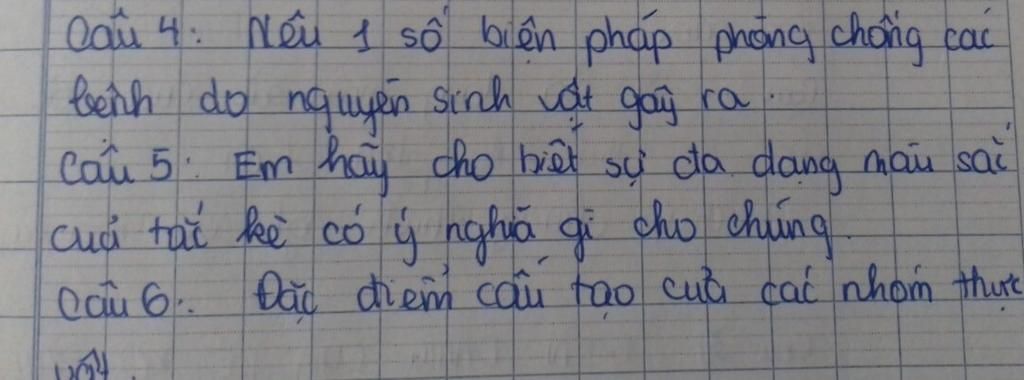 Câu 4: Nêu 1 số biện pháp phòng chống các
bệnh do nguyên sinh vật gây ra.
Câu 5: Em hãy cho biết sự đa dạng màu sắc
của tắc kè có ý nghĩa gì cho chúng.
Câu 6: Đặc điểm cấu tạo của các nhóm thực
vật